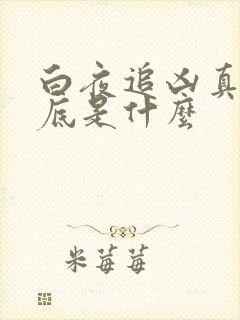 白夜追凶真
底是什麼
米莓莓